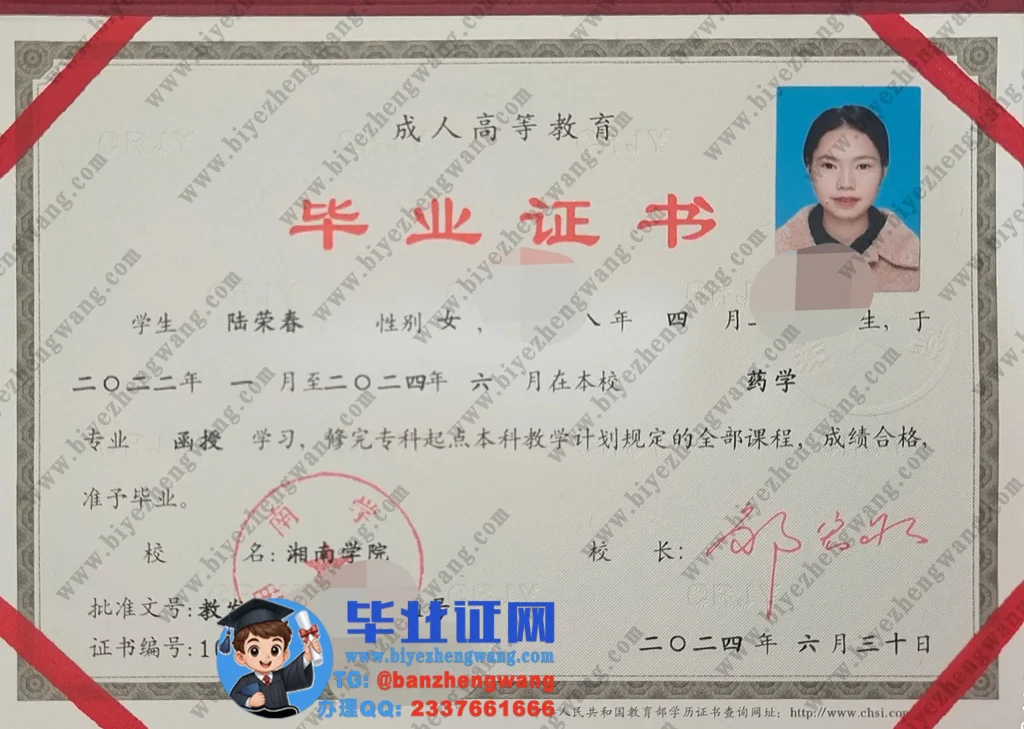 成人高等教育
毕业证书
学生 陆荣春 性别 女， 八年 四 月 生，于
二〇二二年 一 月至二〇二四年 六 月在本校 药学
专业 函授 学习，修完专科起点本科教学计划规定的全部课程，成绩合格，
准予毕业。
南 学
校 名：湘南学院 校 长：
批准文号：教发 号
证书编号：1 二〇二四 年 六 月三十日
毕业证网
www.biyezhengwang.com
TG: @banzhengwang
办理QQ: 2337661666
人民共和国教育部学历证书查询网址：http://www.chsi.com
www.biyezhengwang.com